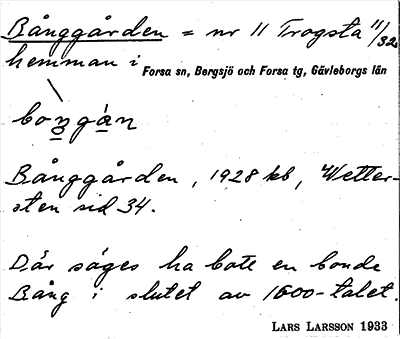 Bånggården = nr 11 Trogsta 11/32
hemman i Forsa sn, Bergsjö och Forsa tg, Gävleborgs län
bongàn
Bånggården, 1928 kb, Wetter-
sten sid 34.
Där säges ha bott en bonde
Bång i slutet av 1600-talet.
LARS LARSSON 1933